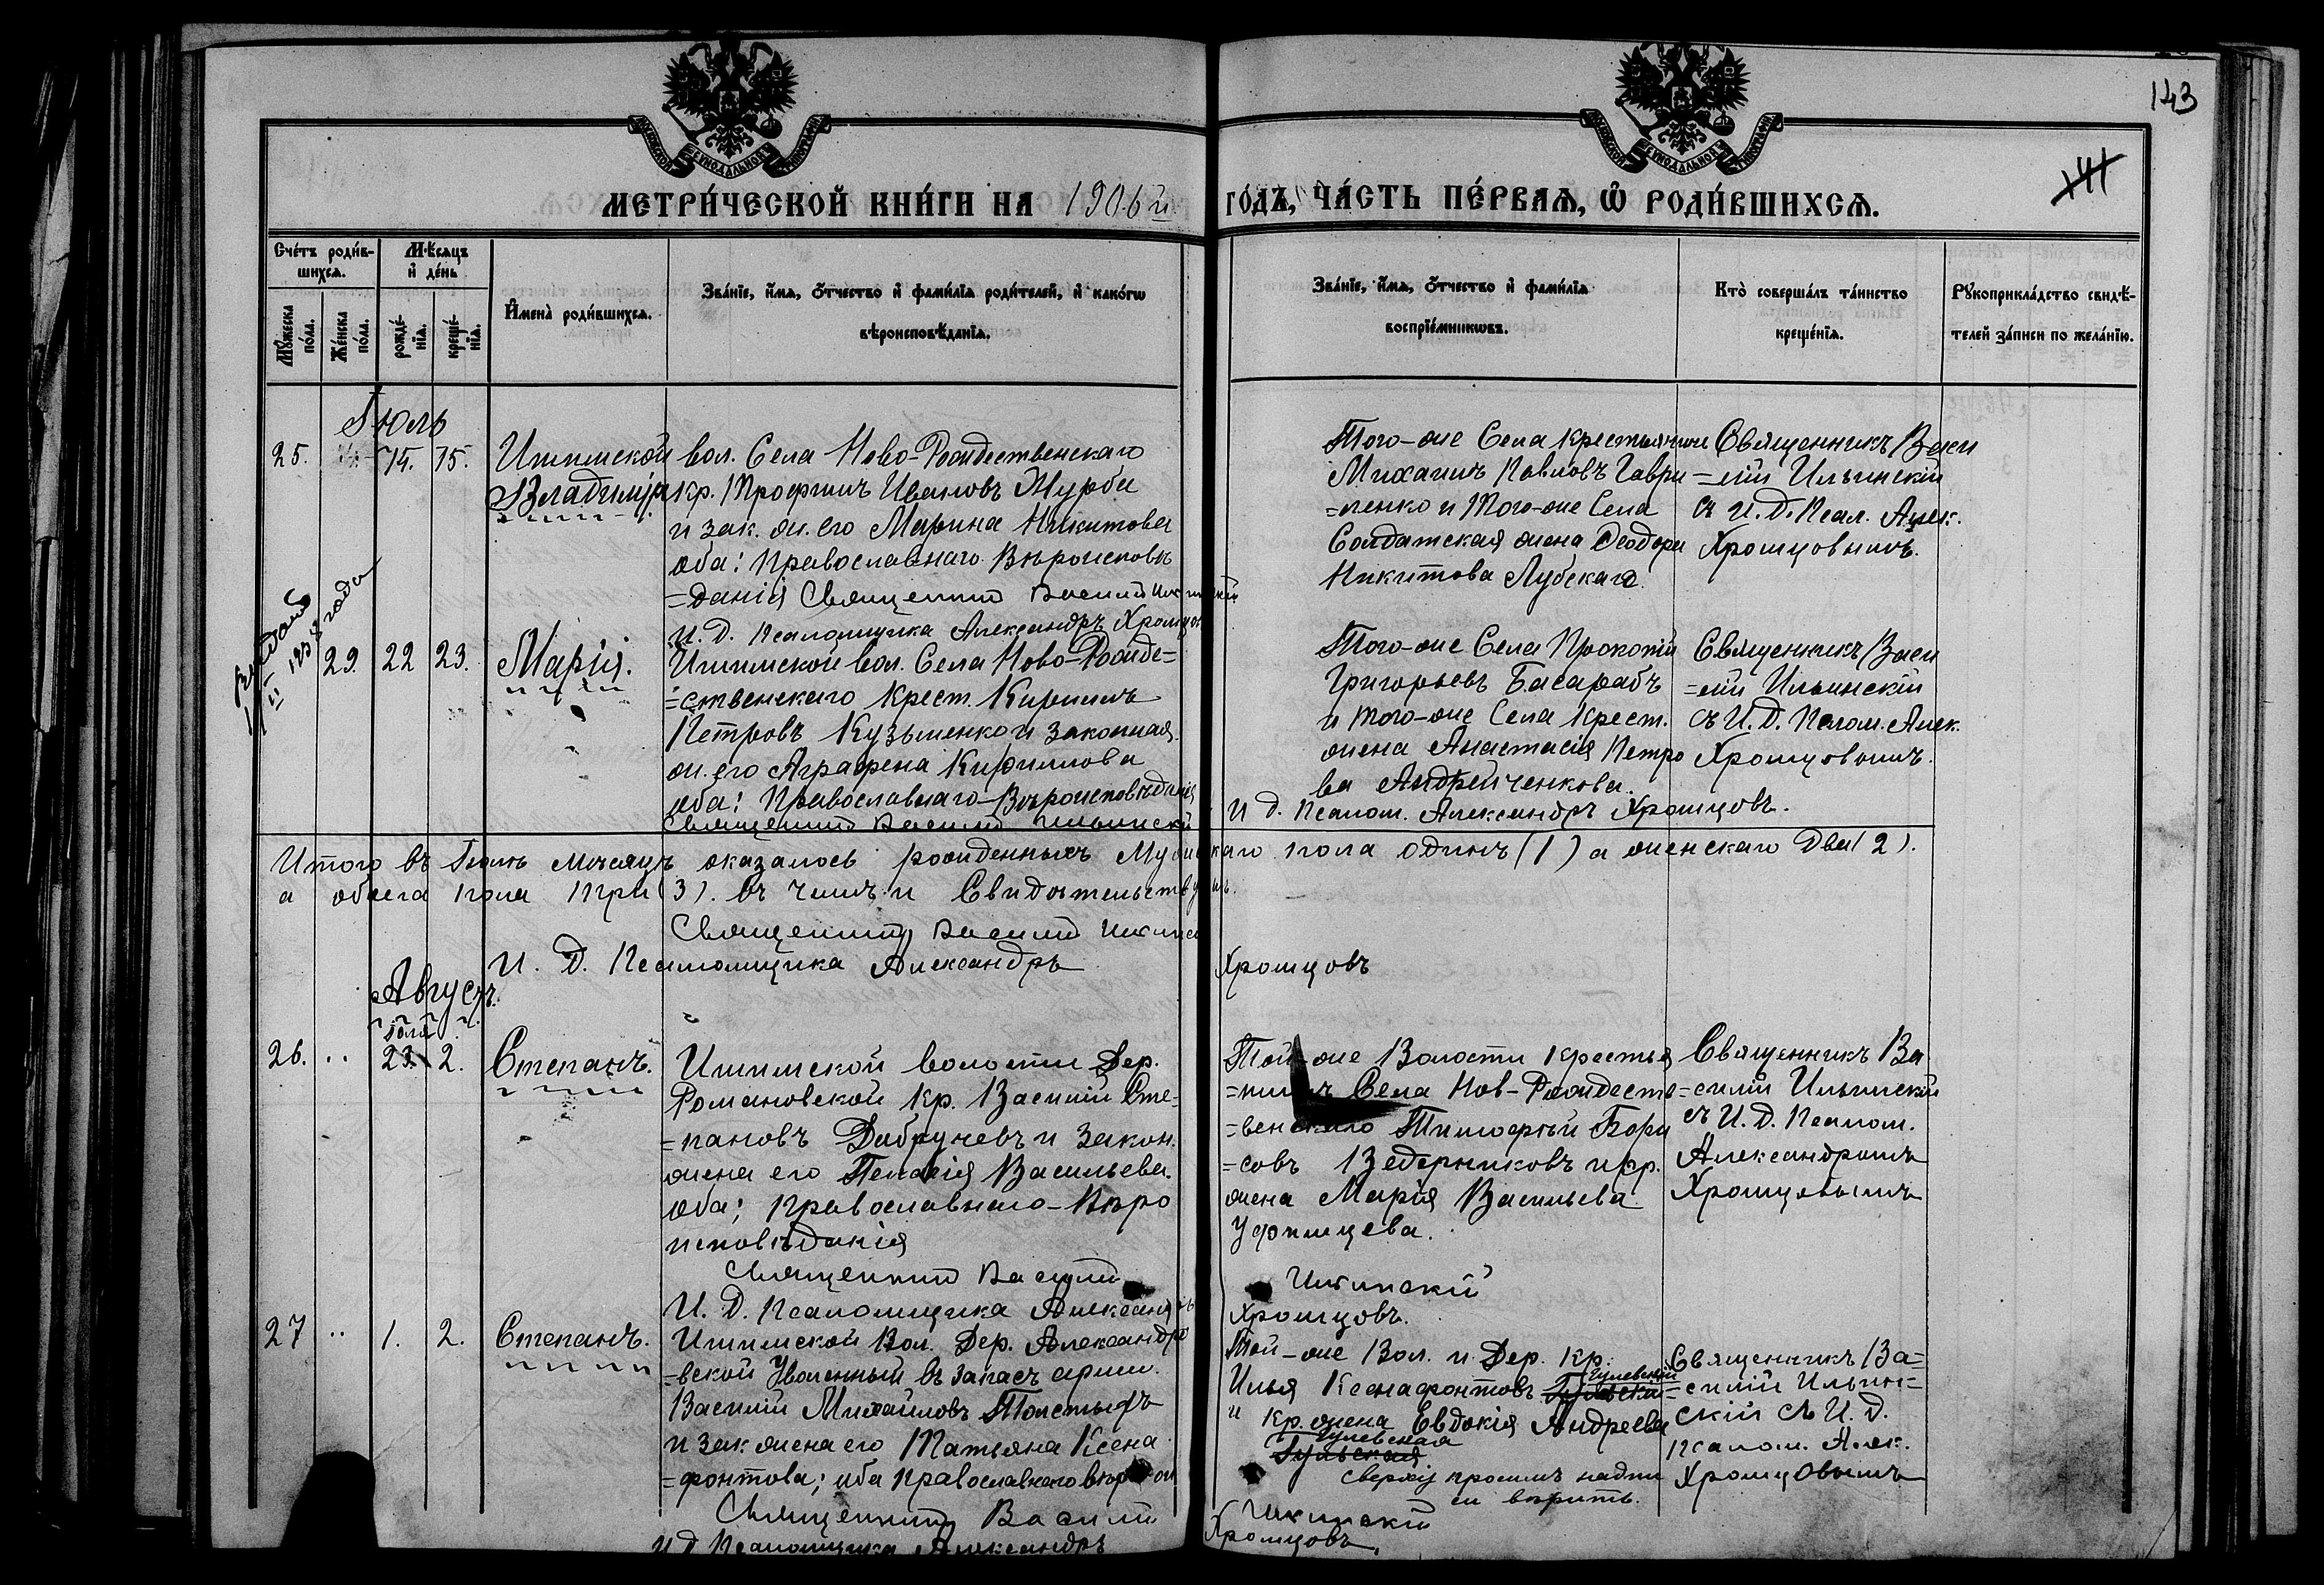 143
141
МОСКОВСКОЙ СѴНОДАЛЬНОЙ ТИПОГРАФІИ
МОСКОВСКОЙ СѴНОДАЛЬНОЙ ТИПОГРАФІИ
МЕТРИ́ЧЕСКОЙ КНИ́ГИ НА 1906й ГО́ДЪ, ЧА́СТЬ ПЕ́РВАѦ, Ѡ РОДИ́ВШИХСѦ.
Сче́тъ роди́в-
шихсѧ.
Мѣ́сѧцъ
и́ де́нь
Мꙋ́жеска по́ла.
Же́нска по́ла.
рожде́-нїѧ.
креще́-нїѧ.
И҆мена̀ роди́вшихсѧ.
Зва́нїе, и҆́мѧ, ѻ҆́тчество и҆ фами́лїѧ роди́телей, и҆ како́гѡ
вѣроисповѣ́данїѧ.
Зва́нїе, и҆́мѧ, ѻ҆́тчество и҆ фами́лїѧ
воспрїе́мникѡвъ.
Кто̀ соверша́лъ та́инство
креще́нїѧ.
Рꙋкоприкла́дство свидѣ́-
телей за́писи по жела́нїю.
Іюль
25. 14. 15.
Владиміръ
Ишимской вол. Села Ново-Рождественскаго
кр. Трофимъ Ивановъ Журба
и зак. ж. его Марина Никитова
оба: Православнаго Вѣроисповѣ
=данія Священникъ Василій Ильинскій
И. Д. Псаломщика Александръ Хромцовъ
Того-же Села крестьянинъ
Михаилъ Павловъ Гаври
=ленко и Того-же Села
Солдатская жена Ѳеодора
Никитова Лубскаго.
Священникъ Васи
=лій Ильинскій
съ И. Д. Псал. Алек.
Хромцовымъ.
выдано
1938 года
29. 22 23.
Марія.
Ишимской вол. Села Ново-Рожде=
=ственскаго крест. Кириллъ
Петровъ Кузьменко и законная
ж. его Аграфена Кириллова
оба: Православнаго-Вѣроисповѣданія
Священникъ Василій Ильинскій
И Д. Псалом. Александръ Хромцовъ.
Того-же Села Прокопій
Григорьевъ Басарабъ
и того-же Села Крест.
жена Анастасія Петро
ва Андрейченкова.
Священникъ Васи
=лій Ильинскій
съ И. Д. Псалом. Алек.
Хромцовымъ.
Итого въ Іюлѣ мѣсяцѣ оказалось рожденныхъ Мужскаго пола одинъ (1) а женскаго Два (2).
а обоего пола три (3). Въ чемъ и Свидѣтельствуемъ.
Священникъ Василій Ильинскій
И. Д. Псаломщика Александръ Хромцовъ
Августъ.
Іюля
26. .. 23. 2.
Степанъ.
Ишимской волости Дер.
Романовской Кр. Василій Сте=
=пановъ Добруневъ и Закон.
жена его Пелагія Васильева.
оба; Православнаго-Вѣро
исповѣданія
Священникъ Василій Ильинскій
И. Д. Псаломщика Александръ Хромцовъ.
Той-же Волости Крестья
=нинъ Села Нов-Рождеств
=венскаго Тимофѣй Бори
=совъ Ведерниковъ и кр.
жена Марія Васильева
Уфимцева.
Священникъ Ва
=силій Ильинскій
съ И. Д. Псалом.
Александромъ
Хромцовымъ
27 .. 1. 2.
Степанъ.
Ишимской Вол. Дер. Александро
=вской Уволенный въ запасъ арміи.
Василій Михайловъ Толстыхъ
и зак жена его Татьяна Ксена
=фонтова; оба Православнаго вѣроисп
Священникъ Василій Ильинскій
И Д Псаломщика Александръ Хромцовъ.
Той-же Вол. и Дер. Кр.
Гулевской
Илья Ксенафонтовъ
и кр. жена Евдокія Андреева
Гулевская
Гульская
сверху просимъ надпи
си вѣрить.
Священникъ Ва=
=силій Ильин=
скій съ И. Д.
псалом. Алек.
Хромцовымъ